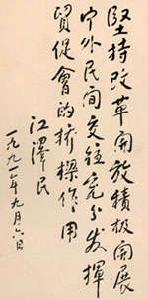 堅持改革開放積極開展
中外民间交往充分发揮
貿促會的桥樑作用
江澤民
一九九一年九月六日